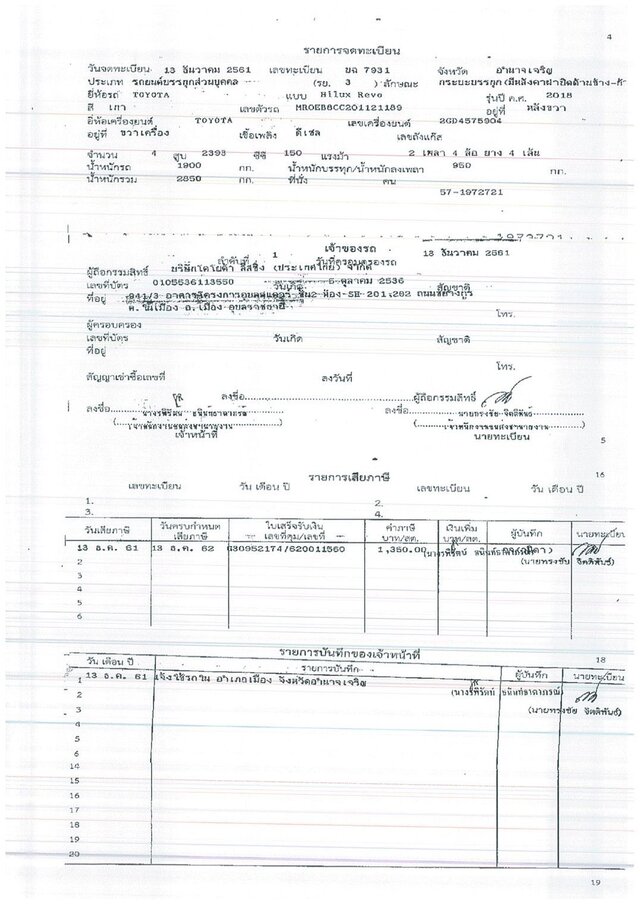 4
รายการจดทะเบียน
วันจดทะเบียน 13 ธันวาคม 2561 เลขทะเบียน 7931 จังหวัด อำนาจเจริญ
ประเภท รถยนต์บรรทุกส่วนบุคคล (รย. 3 ) ลักษณะ กระบะบรรทุก
ยี่ห้อรถ TOYOTA แบบ Hilux Revo รุ่นปี ค.ศ. 2018
สี เทา เลขตัวรถ MR0EB8CC201121189 อยู่ที่ หลังขวา
ยี่ห้อเครื่องยนต์ TOYOTA เลขเครื่องยนต์ 2GD4575904
อยู่ที่ ขวาเครื่อง เชื้อเพลิง ดีเซล เลขถังแก๊ส
จำนวน 4 สูบ 2393 ซีซี 150 แรงม้า 2 เพลา 4 ล้อ ยาง 4 เส้น
น้ำหนักรถ 1900 กก. น้ำหนักบรรทุก/น้ำหนักลงเพลา 950 กก.
น้ำหนักรวม 2850 กก. ที่นั่ง คน
57-1972721
เจ้าของรถ
ลำดับที่ 1 วันที่ครอบครองรถ 13 ธันวาคม 2561
ผู้ถือกรรมสิทธิ์ บริษัทโตโยต้า ลีสซิ่ง (ประเทศไทย) จำกัด
เลขที่บัตร 0105536113550 วันเกิด 5 ตุลาคม 2536 สัญชาติ
ที่อยู่
ต.ในเมือง อ.เมือง อุบลราชธานี โทร.
ผู้ครอบครอง
เลขที่บัตร วันเกิด สัญชาติ
ที่อยู่
โทร.
สัญญาเช่าซื้อเลขที่ ลงวันที่
ลงชื่อ ผู้ถือกรรมสิทธิ์
ลงชื่อ ลงชื่อ นายทรงชัย จิตติพันธ์
(เจ้าพนักงานขนส่งชำนาญงาน) (เจ้าพนักงานขนส่งชำนาญงาน)
เจ้าหน้าที่ นายทะเบียน
5
รายการเสียภาษี 16
เลขทะเบียน วัน เดือน ปี เลขทะเบียน วัน เดือน ปี
1. 2.
3. 4.
วันเสียภาษี วันครบกำหนดเสียภาษี ใบเสร็จรับเงิน เลขที่คุม/เลขที่ ค่าภาษี บาท/สต. เงินเพิ่ม บาท/สต. ผู้บันทึก นายทะเบียน
13 ธ.ค. 61 13 ธ.ค. 62 630952174/620011560 1,350.00
2 (นายทรงชัย จิตติพันธ์)
3
4
5
6
รายการบันทึกของเจ้าหน้าที่ 18
วัน เดือน ปี รายการบันทึก ผู้บันทึก นายทะเบียน
1 13 ธ.ค. 61 แจ้งใช้รถใน อำเภอเมือง จังหวัดอำนาจเจริญ
2
3 (นายทรงชัย จิตติพันธ์)
4
5
6
14
15
16
17
18
19
20
19